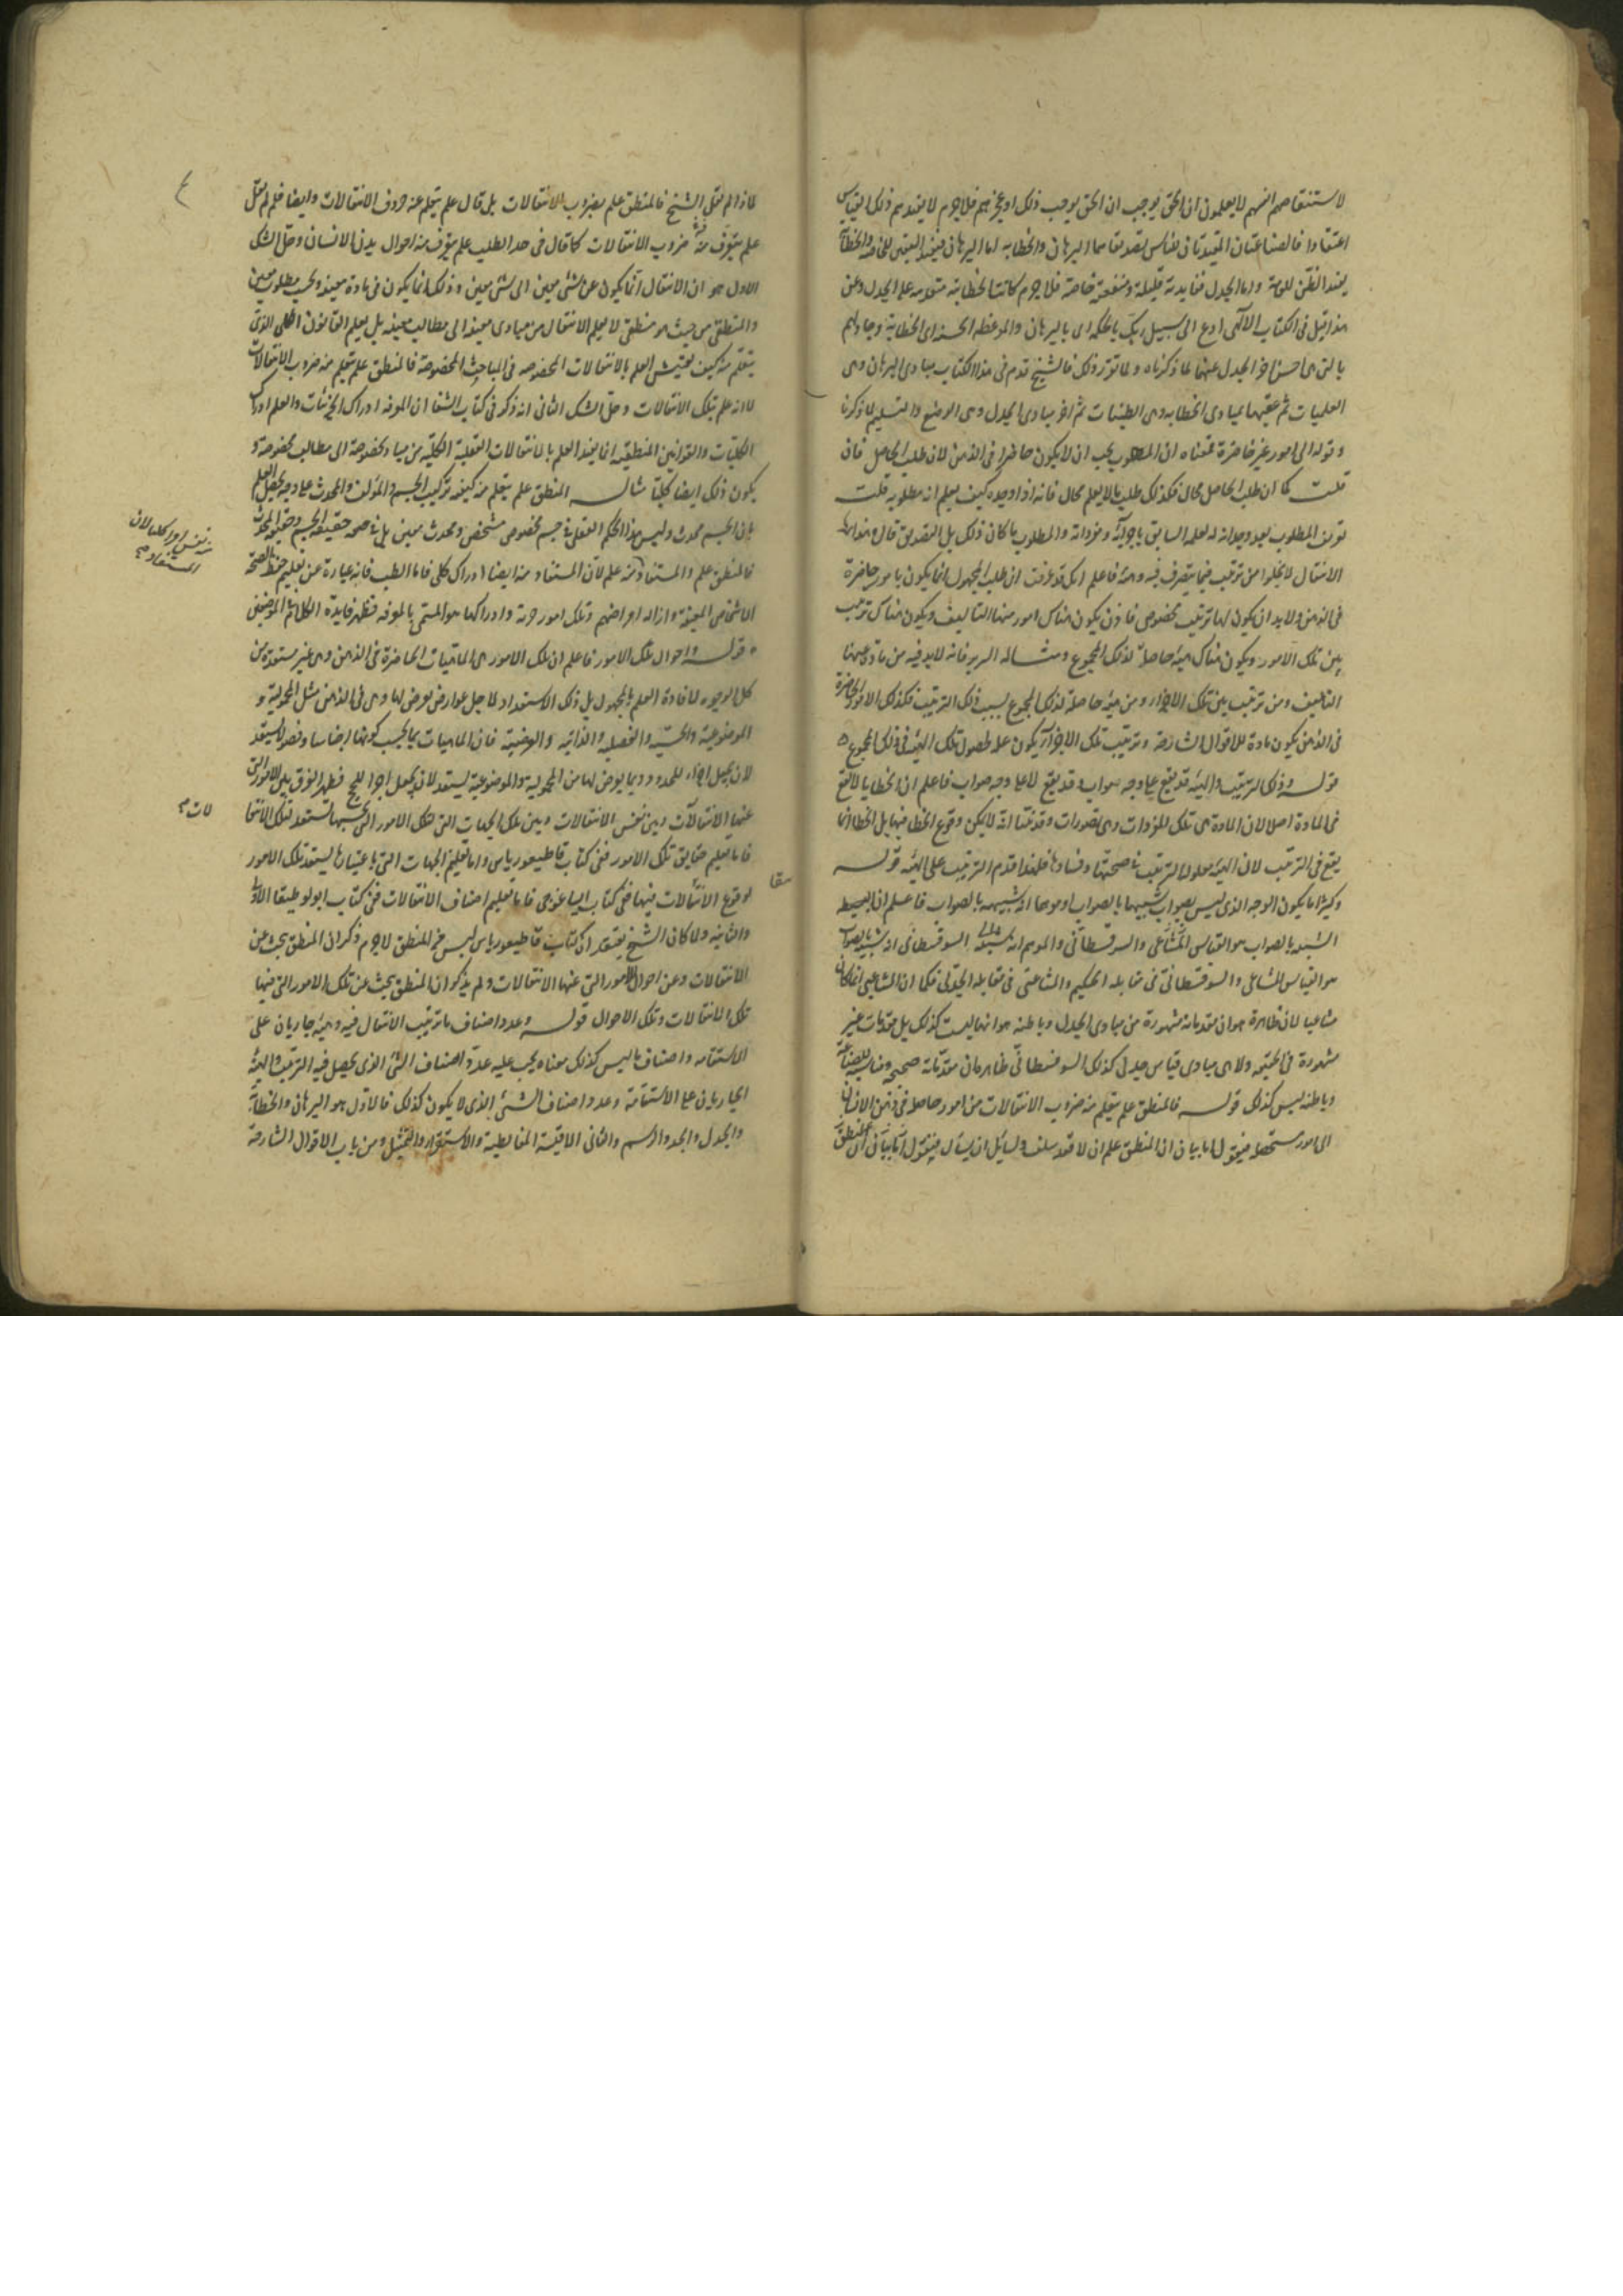 لاستنقاصهم انفسهم لا يعلمون ان الحق يوجب ان الحق يوجب ذلك او عجزهم فلا جرم لا يفيدهم ذلك القياس
اعتقادا فالصناعتان المفيدتان للناس تصديقا هما البرهان والخطابه اما البرهان فيفيد اليقين للخاصه والخطابة
يفيد الظن للعامة واما الجدل ففايدته قليلة ومنفعته خاصة فلا جرم كانت الخطابة متقدمه على الجدل وعن
هذا قيل فى الكتاب الالهى ادع الى سبيل ربك بالحكمه اى بالبرهان والموعظه الحسنه اى الخطابة وجادلهم
بالتى هى احسن اخر الجدل عنهما لما ذكرناه ولما تقرر ذلك فالشيخ قدم فى هذا الكتاب مبادى البرهان وهى
العلميات ثم عقبها بمبادى الخطابه وهى الظنيات ثم اخر مبادى الجدل وهى الوضع والتسليم لما ذكرنا
وقوله الى امور غير حاضرة فمعناه ان المطلوب يجب ان لا يكون حاضرا فى الذهن لان طلب الحاصل فان
قلت كما ان طلب الحاصل محال فكذلك طلب ما لا يعلم محال فانه اذا وجده كيف يعلم انه مطلوبه قلت
تعرف المطلوب بعد وجدانه له لعلمه السابق باجزائه ومفرداته والمطلوب ما كان ذلك بل التصديق قال وهذا
الانتقال لا يخلو من ترتيب فيما يتصرف فيه وهيئة فاعلم انك قد عرفت ان طلب المجهول انما يكون بامور حاضرة
فى الذهن ولا بد ان يكون لها ترتيب مخصوص فاذن يكون هناك امور منها التاليف ويكون هناك ترتيب
بين تلك الامور ويكون هناك هيئة حاصلة لذلك المجموع ومثاله السرير فانه لا بد فيه من مادة عنها
التاليف ومن ترتيب بين تلك الاجزاء ومن هيئة حاصلة لذلك المجموع بسبب ذلك الترتيب فكذلك الامور الحاضرة
فى الذهن يكون مادة للاقوال الشارحة وترتيب تلك الاجزاء يكون علة لحصول تلك الهيئة فى ذلك المجموع
قوله وذلك الترتيب والهيئة قد يقع على وجه صواب وقد يقع لا على وجه صواب فاعلم ان الخطا لا يقع
فى المادة اصلا لان المادة هى تلك المفردات وهى تصورات وقد بينا انه لا يمكن وقوع الخطا فيها بل الخطا انما
يقع فى الترتيب لان الهيئة معلولة الترتيب فى صحتها وفسادها فلهذا قدم الترتيب على الهيئة قوله
وكثيرا ما يكون الوجه الذى ليس بصواب شبيها بالصواب او موهما انه شبيهه بالصواب فاعلم ان البسيطه
الشبيه بالصواب هو القياس المشاغبى والسوفسطائى والموهم انه شبيه السوفسطائى انه شبيه بالصواب
هو القياس المشاغبى والسوفسطائى فى مقابله الحكيم والمشاغبى فى مقابله الجدلى فكما ان المشاغبى انما كان
مشاغبا لان ظاهره هو ان مقدماته مشهورة من مبادى الجدل وباطنه هو انها ليست كذلك بل مقدمات غير
مشهورة فى الحقيقه ولا هى مبادى قياس جدلى كذلك السوفسطائى ظاهره ان مقدماته صحيحه ومناسبه للصناعة
وباطنه ليس كذلك قوله فالمنطق علم يتعلم منه ضروب الانتقالات من امور حاصله فى ذهن الانسان
الى امور مستحصله فيقول اما بيان ان المنطق علم ان لا فقد سلف ولسايل ان يسأل فيقول اما بيان ان المنطق
لماذا لم يقل الشيخ فالمنطق علم بضروب الانتقالات بل قال علم يتعلم منه ضروب الانتقالات وايضا فلم لم يقل
علم يتعرف منه ضروب الانتقالات كما قال فى حد الطب علم يتعرف منه احوال بدن الانسان وحل الشك
الاول هو ان الانتقال انما يكون عن شئ معين الى شئ معين وذلك انما يكون فى مادة معينه وبحسب مطلوب معين
والمنطق من حيث هو منطقى لا يعلم الانتقال من مبادى معينه الى مطالب معينه بل يعلم القانون الكلى الذى
يتعلم منه كيف يفتش العلم بالانتقالات المخصوصه فى المباحث المخصوصة فالمنطق علم يتعلم منه ضروب الانتقالات
لا انه علم بتلك الانتقالات وحل الشك الثانى انه ذكر فى كتاب الشفا ان المعرفه ادراك الجزئيات والعلم ادراك
الكليات والقوانين المنطقيه انما يفيد العلم بالانتقالات العقلية الكلية من مباد مخصوصه الى مطالب مخصوصة و
يكون ذلك ايضا كليا مثاله المنطق علم يتعلم منه كيفيه تركيب الجسم والمؤلف والمحدث على وجه يحصل العلم
بان الجسم محدث وليس هذا الحكم العقلى فى جسم مخصوص مشخص ومحدث معين بل فى صحه حقيقه الجسم وحقيقه المحدث
فالمنطق علم والمستفاد منه علم لان المستفاد منه ايضا ادراك كلى فاما الطب فانه عبارة عن تعليم حفظ الصحة
الاشخاص المعينة وازاله امراضهم وتلك امور جزئية وادراكها هو المسمى بالمعرفه فظهر فايدة الكلام فى الموضعين
قوله واحوال تلك الامور فاعلم ان تلك الامور هى الماهيات الحاضرة فى الذهن وهى غير مستعدة من
كل الوجوه لافادة العلم بالمجهول بل ذلك الاستعداد لاجل عوارض تعرض لها وهى فى الذهن مثل المحمولية و
الموضوعية والجنسيه والفصليه والذاتيه والعرضية فان الماهيات بما يجب كونها اجناسا وفصولا يستعد
لان يجعل اجزاء للحدود وبما يعرض لها من المحمولية والموضوعية يستعد لان يجعل اجزاء للحجج فظهر الفرق بين الامور التى
عنها الانتقالات وبين نفس الانتقالات وبين تلك الجهات التى لتلك الامور التى بحسبها تستعد لتلك الانتقا
فاما تعليم حقايق تلك الامور ففى كتاب قاطيغورياس واما تعليم الجهات التى باعتبارها يستعد تلك الامور
لوقوع الانتقالات فيها ففى كتاب ايساغوجى فاما تعليم اصناف الانتقالات ففى كتاب انولوطيقا الاولى
والثانيه ولما كان الشيخ يعتقد ان كتاب قاطيغورياس ليس من المنطق لا جرم ذكر ان المنطق يبحث عن
الانتقالات وعن احوال الامور التى عنها الانتقالات ولم يذكر ان المنطق يبحث عن تلك الامور التى فيها
تلك الانتقالات وتلك الاحوال قوله وعدد اصناف ما ترتيب الانتقال فيه وهيئة جاريان على
الاستقامه واصناف ما ليس كذلك معناه يجب عليه عد اصناف الشئ الذى يحصل فيه الترتيب والهيئة
الجاريان على الاستقامة وعدد اصناف الشئ الذى لا يكون كذلك فالاول هو البرهان والخطابة
والجدل والحد والرسم والثانى الاقيسة المغالطية والاستقراء والتمثيل ومن باب الاقوال الشارحة
لات